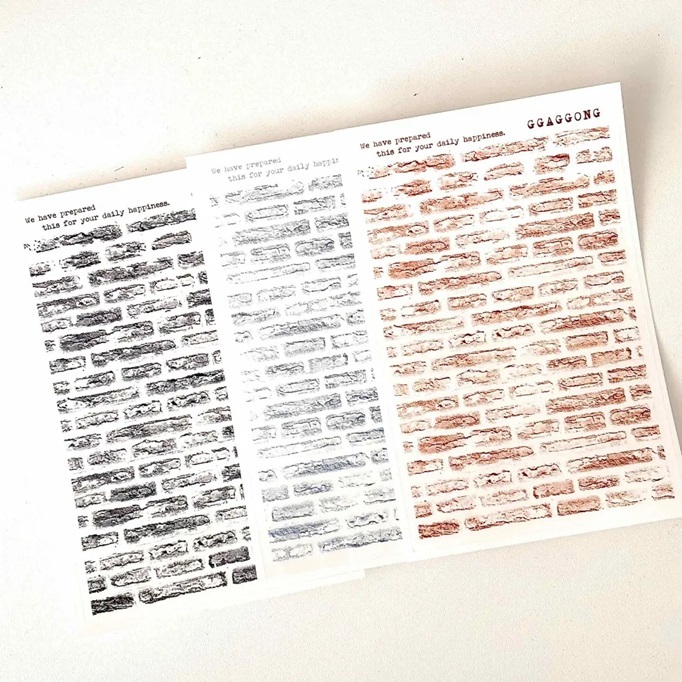 We have prepared
this for your daily happiness.
We have prepared
this for your daily happi
We have prepared
this for your daily happiness.
GGAGGONG